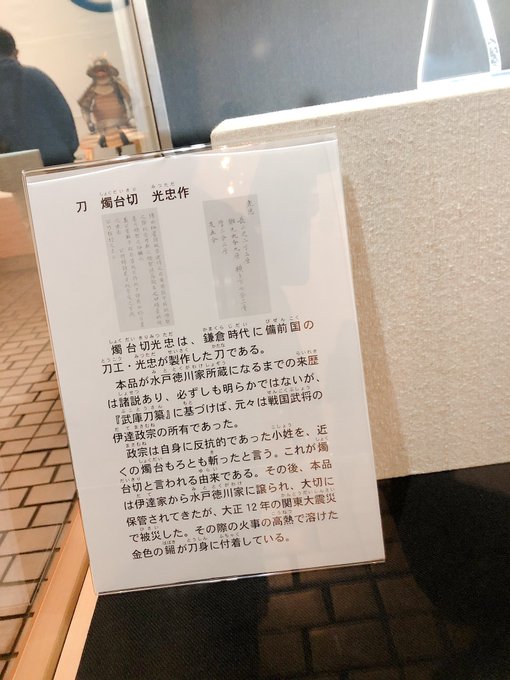 刀 燭台切 光忠作
燭台切光忠は、鎌倉時代に備前国の
刀工・光忠が製作した刀である。
本品が水戸徳川家所蔵になるまでの来歴
は諸説あり、必ずしも明らかではないが、
『武庫刀纂』に基づけば、元々は戦国武将の
伊達政宗の所有であった。
政宗は自身に反抗的であった小姓を、近
くの燭台もろとも斬ったと言う。これが燭
台切と言われる由来である。その後、本品
は伊達家から水戸徳川家に譲られ、大切に
保管されてきたが、大正12年の関東大震災
で被災した。その際の火事の高熱で溶けた
金色の鎺が刀身に付着している。